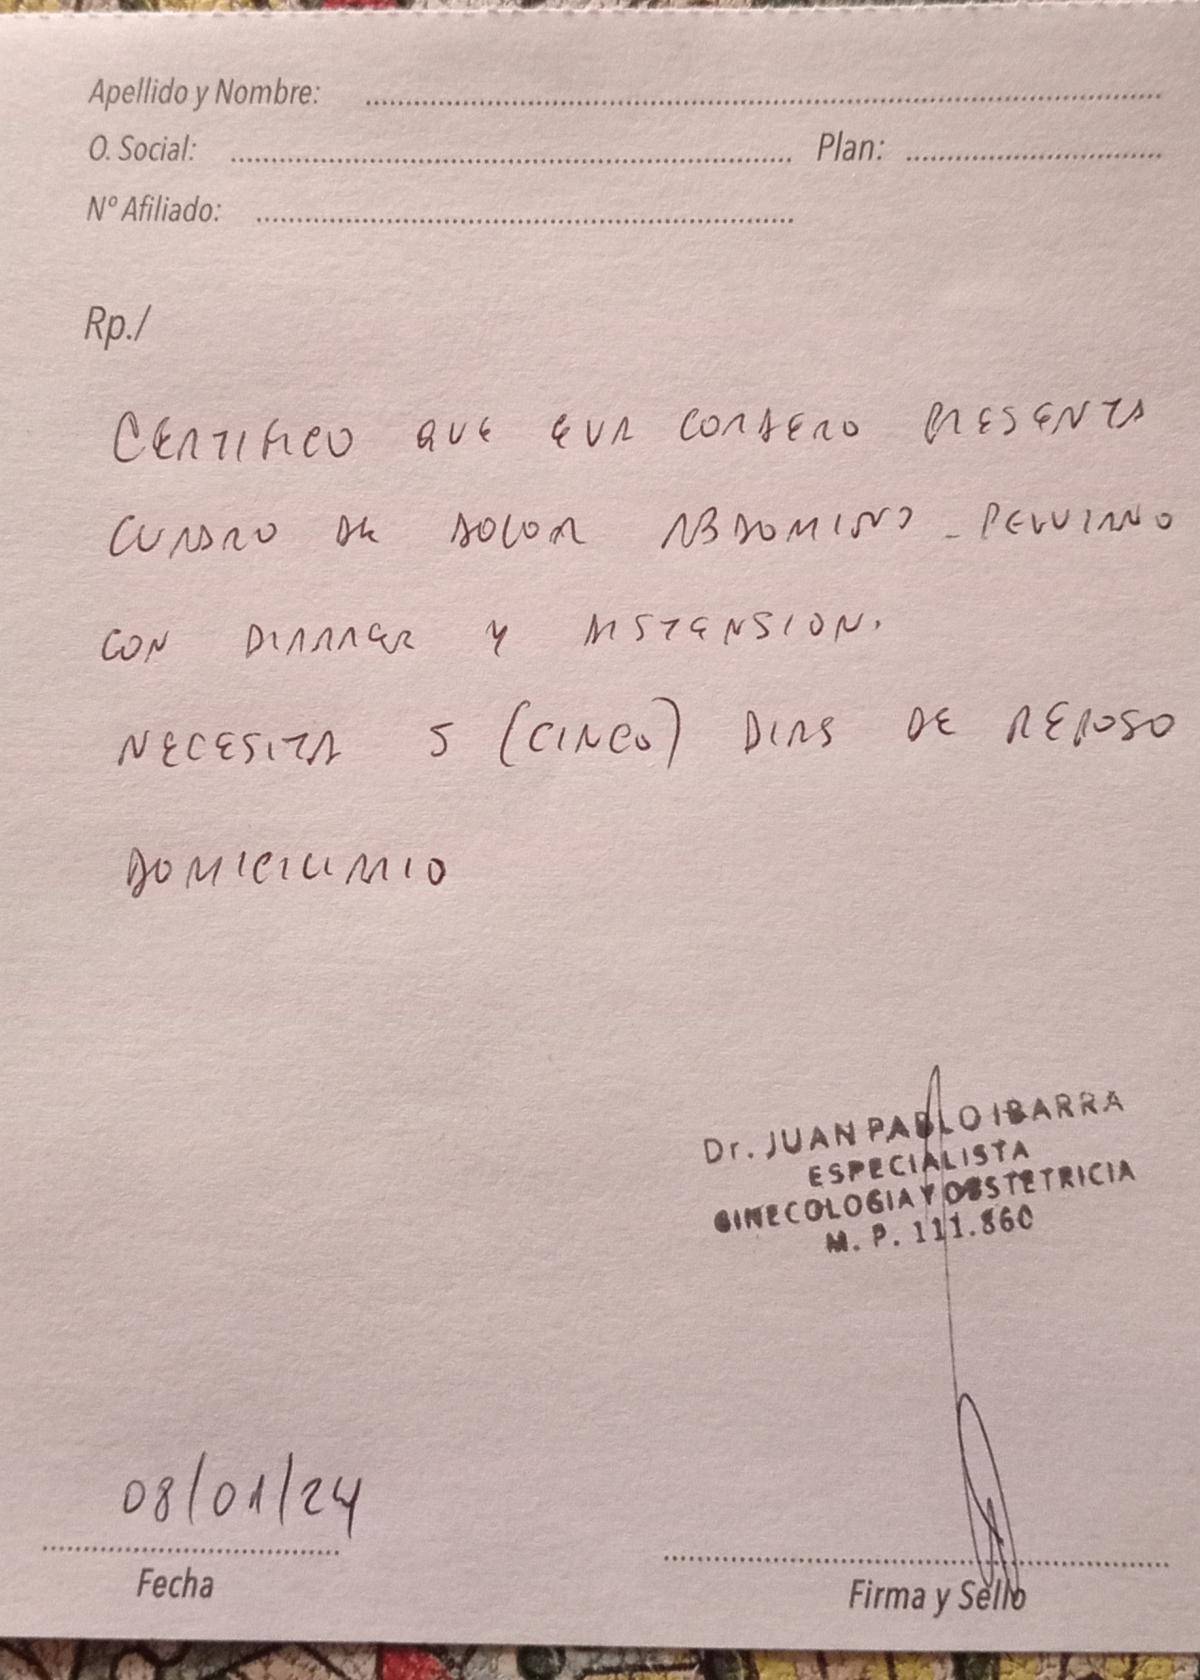 Apellido y Nombre:
O. Social: Plan:
Nº Afiliado:
Rp./
CERTIFICO QUE EVA CORDERO PRESENTA
CUADRO DE DOLOR ABDOMINO - PELVIANO
CON DIARREA Y DISTENSION.
NECESITA 5 (CINCO) DIAS DE REPOSO
DOMICILIARIO
Dr. JUAN PABLO IBARRA
ESPECIALISTA
GINECOLOGIA Y OBSTETRICIA
M. P. 111.860
08/01/24
Fecha
Firma y Sello